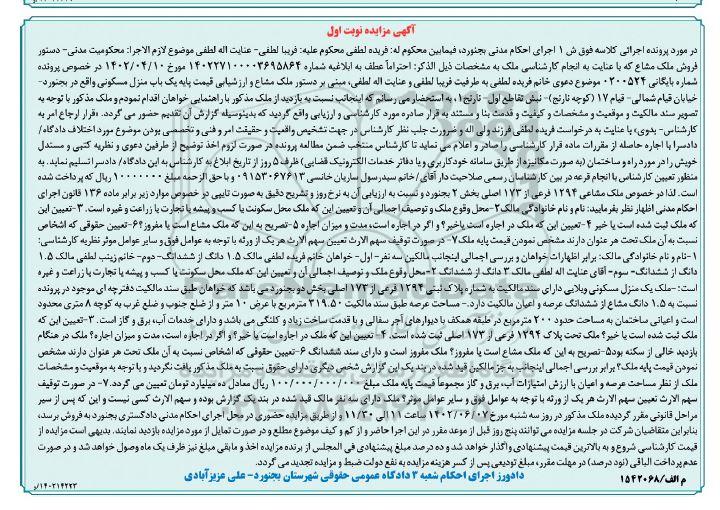 آگهی مزایده نوبت اول
در مورد پرونده اجرائی کلاسه فوق ش ۱ اجرای احکام مدنی بجنورد، فیمابین محکوم له: فریده لطفی محکوم علیه: فریبا لطفی- عنایت اله لطفی موضوع لازم الاجرا: محکومیت مدنی- دستور
فروش ملک مشاع که با عنایت به انجام کارشناسی ملک به مشخصات ذیل الذکر: احتراماً عطف به ابلاغیه شماره ۱۴۰۲۲۷۱۰۰۰۰۳۶۹۵۸۶۴ مورخ ۱۴۰۲/۰۴/۱۰ در خصوص پرونده
شماره بایگانی ۰۲۰۰۵۲۴ موضوع دعوی خانم فریده لطفی به طرفیت فریبا لطفی و عنایت اله لطفی، مبنی بر دستور ملک مشاع و ارزشیابی قیمت پایه یک باب منزل مسکونی واقع در بجنورد-
خیابان قیام شمالی- قیام ۱۷ (کوچه نارنج)- نبش تقاطع اول- نارنج۱، به استحضار می رسانم که اینجانب نسبت به بازدید از ملک مذکور با راهنمایی خواهان اقدام نمودم و ملک مذکور با توجه به
تصویر سند مالکیت و موقعیت و مشخصات و کیفیت و قدمت بنا و مستند به قرار صادره مورد کارشناسی و ارزیابی واقع گردید که بدینوسیله گزارش آن تقدیم حضور می گردد. «قرار ارجاع امر به
کارشناس- بدوی» با عنایت به درخواست فریده لطفی فرزند ولی اله و ضرورت جلب نظر کارشناس در جهت تشخیص واقعیت و حقیقت امر و فنی و تخصصی بودن موضوع مورد اختلاف دادگاه/
دادسرا با اجازه حاصله از مقررات ماده قرار کارشناسی را صادر و اعلام می نماید تا کارشناس منتخب ضمن مطالعه پرونده در صورت لزوم اخذ توضیح از طرفین دعوی و نظریه کتبی و مستدل
خویش را در مورد راه و ساختمان (به صورت مکانیزه از طریق سامانه خودکاربری و یا دفاتر خدمات الکترونیک قضایی) ظرف ۵ روز از تاریخ ابلاغ به کارشناس به این دادگاه/ دادسرا تسلیم نماید. به
منظور تعیین کارشناس با انجام قرعه در بین کارشناسان رسمی صلاحیت دار آقای/خانم سیدرسول ساریان خانسی ۰۹۱۵۳۰۶۷۶۱۳ و با حق الزحمه مبلغ ۱۰۰۰۰۰۰۰ ریال که پرداخت شده
است. لذا در خصوص ملک مشاعی ۱۲۹۴ فرعی از ۱۷۳ اصلی بخش ۲ بجنورد و نسبت به ارزیابی آن به نرخ روز و تشریح دقیق به صورت تایپی در خصوص موارد زیر برابر ماده ۱۳۶ قانون اجرای
احکام مدنی اظهار نظر بفرمایید: نام و نام خانوادگی مالک ۲-محل وقوع ملک و توصیف اجمالی آن و تعیین این که ملک محل سکونت یا کسب و پیشه یا تجارت یا زراعت و غیره است. ۳-تعیین این
که ملک ثبت شده است یا خیر ۴-تعیین این که ملک در اجاره است یاخیر؟ و اگر در اجاره است، مدت و میزان اجاره ۵-تصریح به این که ملک مشاع است یا مفروز؟۶-تعیین حقوقی که اشخاص
نسبت به آن ملک تحت هر عنوان دارند مشخص نمودن قیمت پایه ملک۷- در صورت توقیف سهم الارث تعیین سهم الارث هر یک از ورثه با توجه به عوامل فوق و سایر عوامل موثر نظریه کارشناسی:
۱-نام و نام خانوادگی مالک: برابر اظهارات خواهان و بررسی اجمالی اینجانب مالکین سه نفر- اول- خواهان خانم فریده لطفی مالک ۱.۵ دانگ از ششدانگ- دوم- خانم زینب لطفی مالک ۱.۵
دانگ از ششدانگ- سوم- آقای عنایت اله لطفی مالک ۳ دانگ از ششدانگ ۲-محل وقوع ملک و توصیف اجمالی آن و تعیین این که ملک محل سکونت یا کسب و پیشه یا تجارت یا زراعت و غیره
است:-ملک یک منزل مسکونی ویلایی دارای سند مالکیت به شماره پلاک ثبتی ۱۲۹۴ فرعی از ۱۷۳ اصلی بخش دو بجنورد می باشد که خواهان طبق سند مالکیت دفترچه ای موجود در پرونده
نسبت به ۱.۵ دانگ مشاع از ششدانگ عرصه و اعیان مالکیت دارد.- مساحت عرصه طبق سند مالکیت ۳۱۹.۵۰ مترمربع با عرض ۱۰ متر و از ضلع جنوب و ضلع غرب به کوچه ۸ متری محدود
است و اعیانی ساختمان به مساحت حدود ۲۰۰ مترمربع در طبقه همکف با دیوارهای آجر سفالی و با قدمت ساخت زیاد و کلنگی می باشد و دارای خدمات آب، برق و گاز است. ۳-تعیین این که
ملک ثبت شده است یا خیر؟ ملک تحت پلاک ۱۲۹۴ فرعی از ۱۷۳ اصلی ثبت شده است. ۴- تعیین این که ملک در اجاره است یا خیر؟ و اگر در اجاره است، مدت و میزان اجاره؟ ملک در هنگام
بازدید خالی از سکنه بود۵-تصریح به این که ملک مشاع است یا مفروز؟ ملک مفروز است و دارای سند ششدانگ ۶-تعیین حقوقی که اشخاص نسبت به آن ملک تحت هر عنوان دارند مشخص
نمودن قیمت پایه ملک؟ برابر بررسی اجمالی اینجانب به جز مالکین قید شده در بند یک این گزارش شخص دیگری دارای حقوق نسبت به ملک مذکور یافت نگردید و با توجه به موقعیت و مشخصات
ملک از نظر مساحت عرصه و اعیان با ارزش امتیازات آب، برق و گاز مجموعاً قیمت پایه ملک مبلغ ۱۰۰/۰۰۰/۰۰۰/۰۰۰ ریال معادل ده میلیارد تومان تعیین می گردد. ۷- در صورت توقیف
سهم الارث تعیین سهم الارث هر یک از ورثه با توجه به عوامل فوق و سایر عوامل موثر؟ ملک دارای سه نفر مالک قید شده در بند یک گزارش بوده و سهم الارث کسی نیست و این که پس از سیر
مراحل قانونی مقرر گردیده ملک مذکور در روز سه شنبه مورخ ۱۴۰۲/۰۶/۰۷ ساعت ۱۱ الی ۱۱/۳۰ و از طریق مزایده حضوری در محل اجرای احکام مدنی دادگستری بجنورد به فروش برسد،
بنابراین متقاضیان شرکت در جلسه مزایده می توانند پنج روز قبل از موعد مقرر در این اجرا حاضر و از کم و کیف موضوع مطلع و در صورت تمایل از مورد مزایده بازدید نمایند. بدیهی است مزایده از
قیمت کارشناسی شروع و به بالاترین قیمت پیشنهادی واگذار خواهد شد و ده درصد مبلغ پیشنهادی فی المجلس از برنده مزایده اخذ و مابقی مبلغ نیز ظرف یک ماه وصول خواهد شد و در صورت
عدم پرداخت الباقی (نود درصد) در مهلت مقرر، مبلغ تودیعی پس از کسر هزینه مزایده به نفع دولت ضبط و مزایده تجدید می گردد.
دادورز اجرای احکام شعبه ۳ دادگاه عمومی حقوقی شهرستان بجنورد- علی عزیزآبادی
م الف/۱۵۴۲۰۶۸
۱۴۰۲۱۴۲۲۳/و